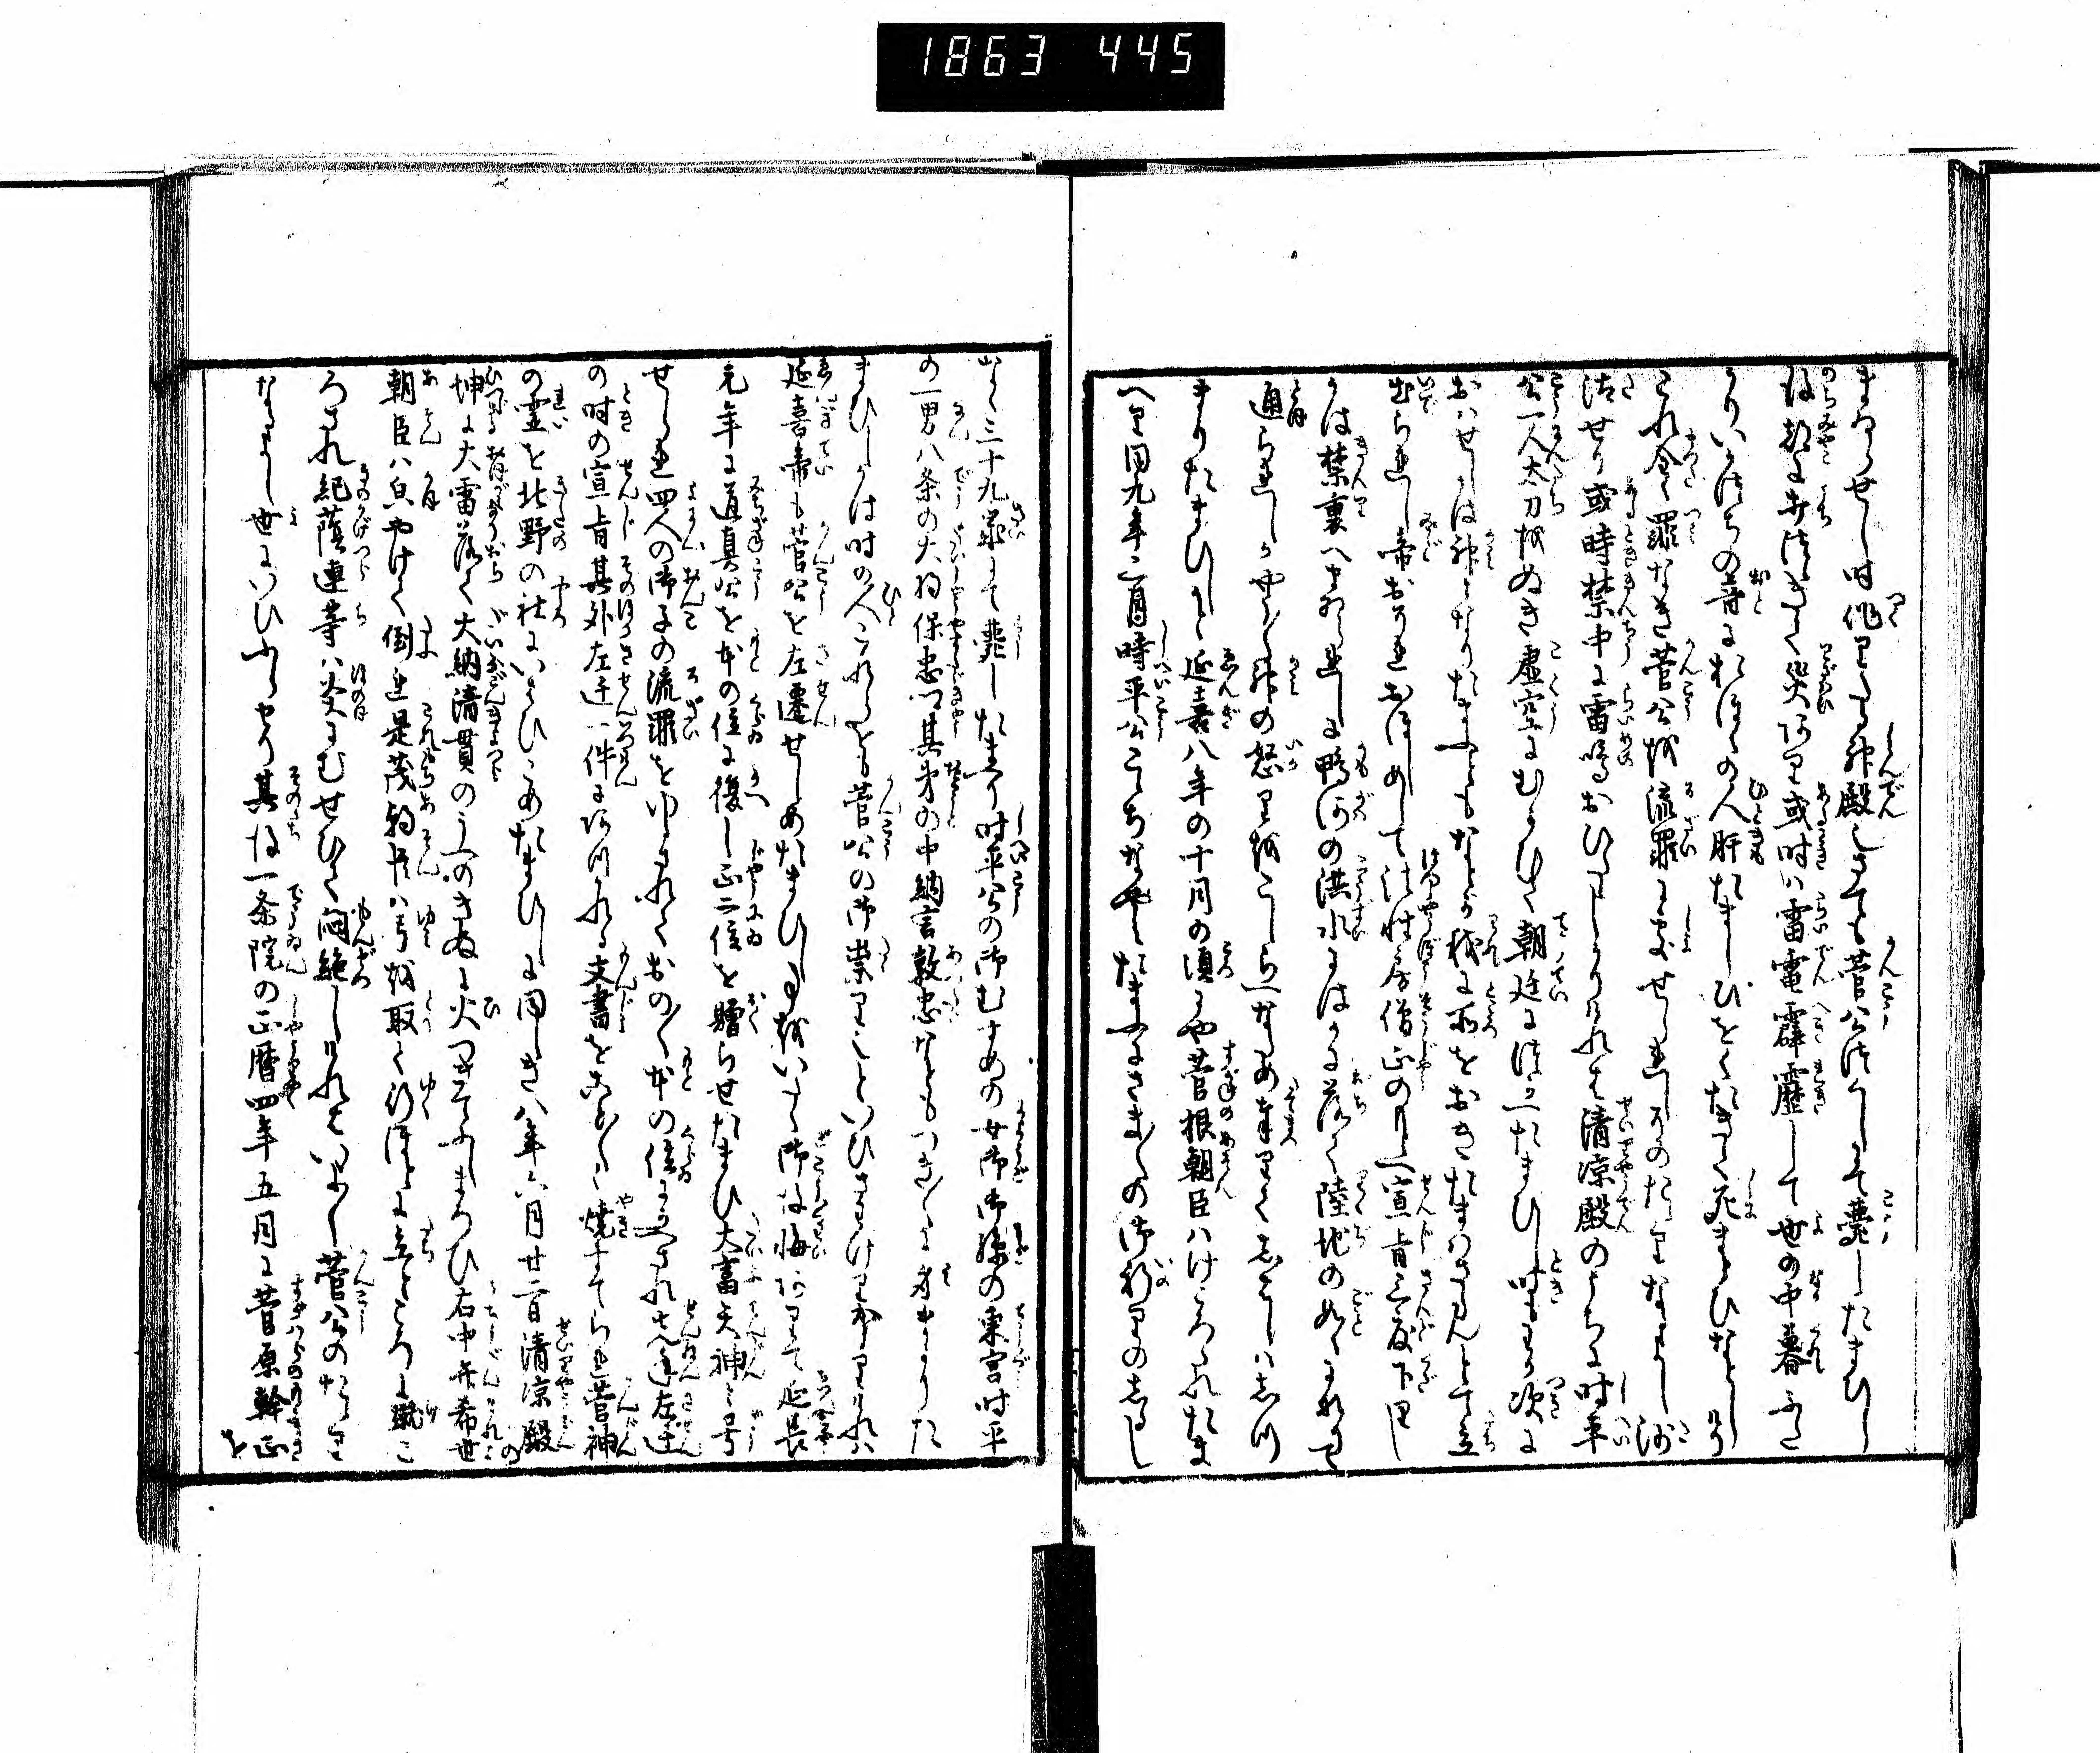 1863 445
まゐらせし時作りたる神殿しさても菅公は薨したまひし
後都にうちつゞき災あり或時は雷電霹靂して世の中暮ふた
かりいかづちの音におほくの人肝たましひをくだきて死まどひなどしけり
これ全く罪なき菅公を流罪にましませしゆへのたゝりなるよし沙
汰せり或時禁中に雷鳴おひたゝしかりければ清凉殿のうちに時平
公一人太刀をぬき虚空にむかひて朝廷につかへたまひし時もわが次に
おはせしかは神となりたまふともなどか我に所をおきたまはざらんとて立
出られし帝おそれおほしめして法性房僧正のかたへ宣旨三度下りし
かは禁裏へまゐられしに鴨河の洪水たちまちに落て陸地の如くなれは
通られしかやう〳〵神の怒りをこしらへなため奉りてしばしはしつ
まりたまひしか延喜八年の十月の頃にや菅根朝臣はけころされたま
へり同九年三月時平公こもちなやみたまふにさま〳〵の御祈りのしるし
なく三十九歳にて薨したまへり時平公の御むすめの女御御孫の東宮時平
の一男八条の大将保忠公其弟の中納言敦忠などもつぎ〳〵に身まかりた
まひしかは時の人これをも菅公の御崇りといひさわけりかゝりけれは
延喜帝も菅公を左遷せしめたまひし事をいたく御後悔ありて延長
元年に道真公を本の位に復し正二位を贈らせたまひ大富天神と号
せらる四人の御子の流罪をゆるされておの〳〵本の位にかへされ先年左迁
の時の宣旨其外左迁一件にあづかれる文書をこと〴〵く焼すてらる菅神
の霊を北野の社にいはひこめたまひしに同しき八年六月廿六日清凉殿の
坤に大雷落て大納清貫のうへのきぬに火つきてふしまろひ右中弁希世
朝臣は貞やけて倒る是茂朝臣は弓を取て行ほどに立どころに蹴こ
ろされ紀蔭連等は炎にむせひて悶絶しけれはいよ〳〵菅公のたゝり
なるよし世にいひふらせり其後一条院の正暦四年五月に菅原幹正を